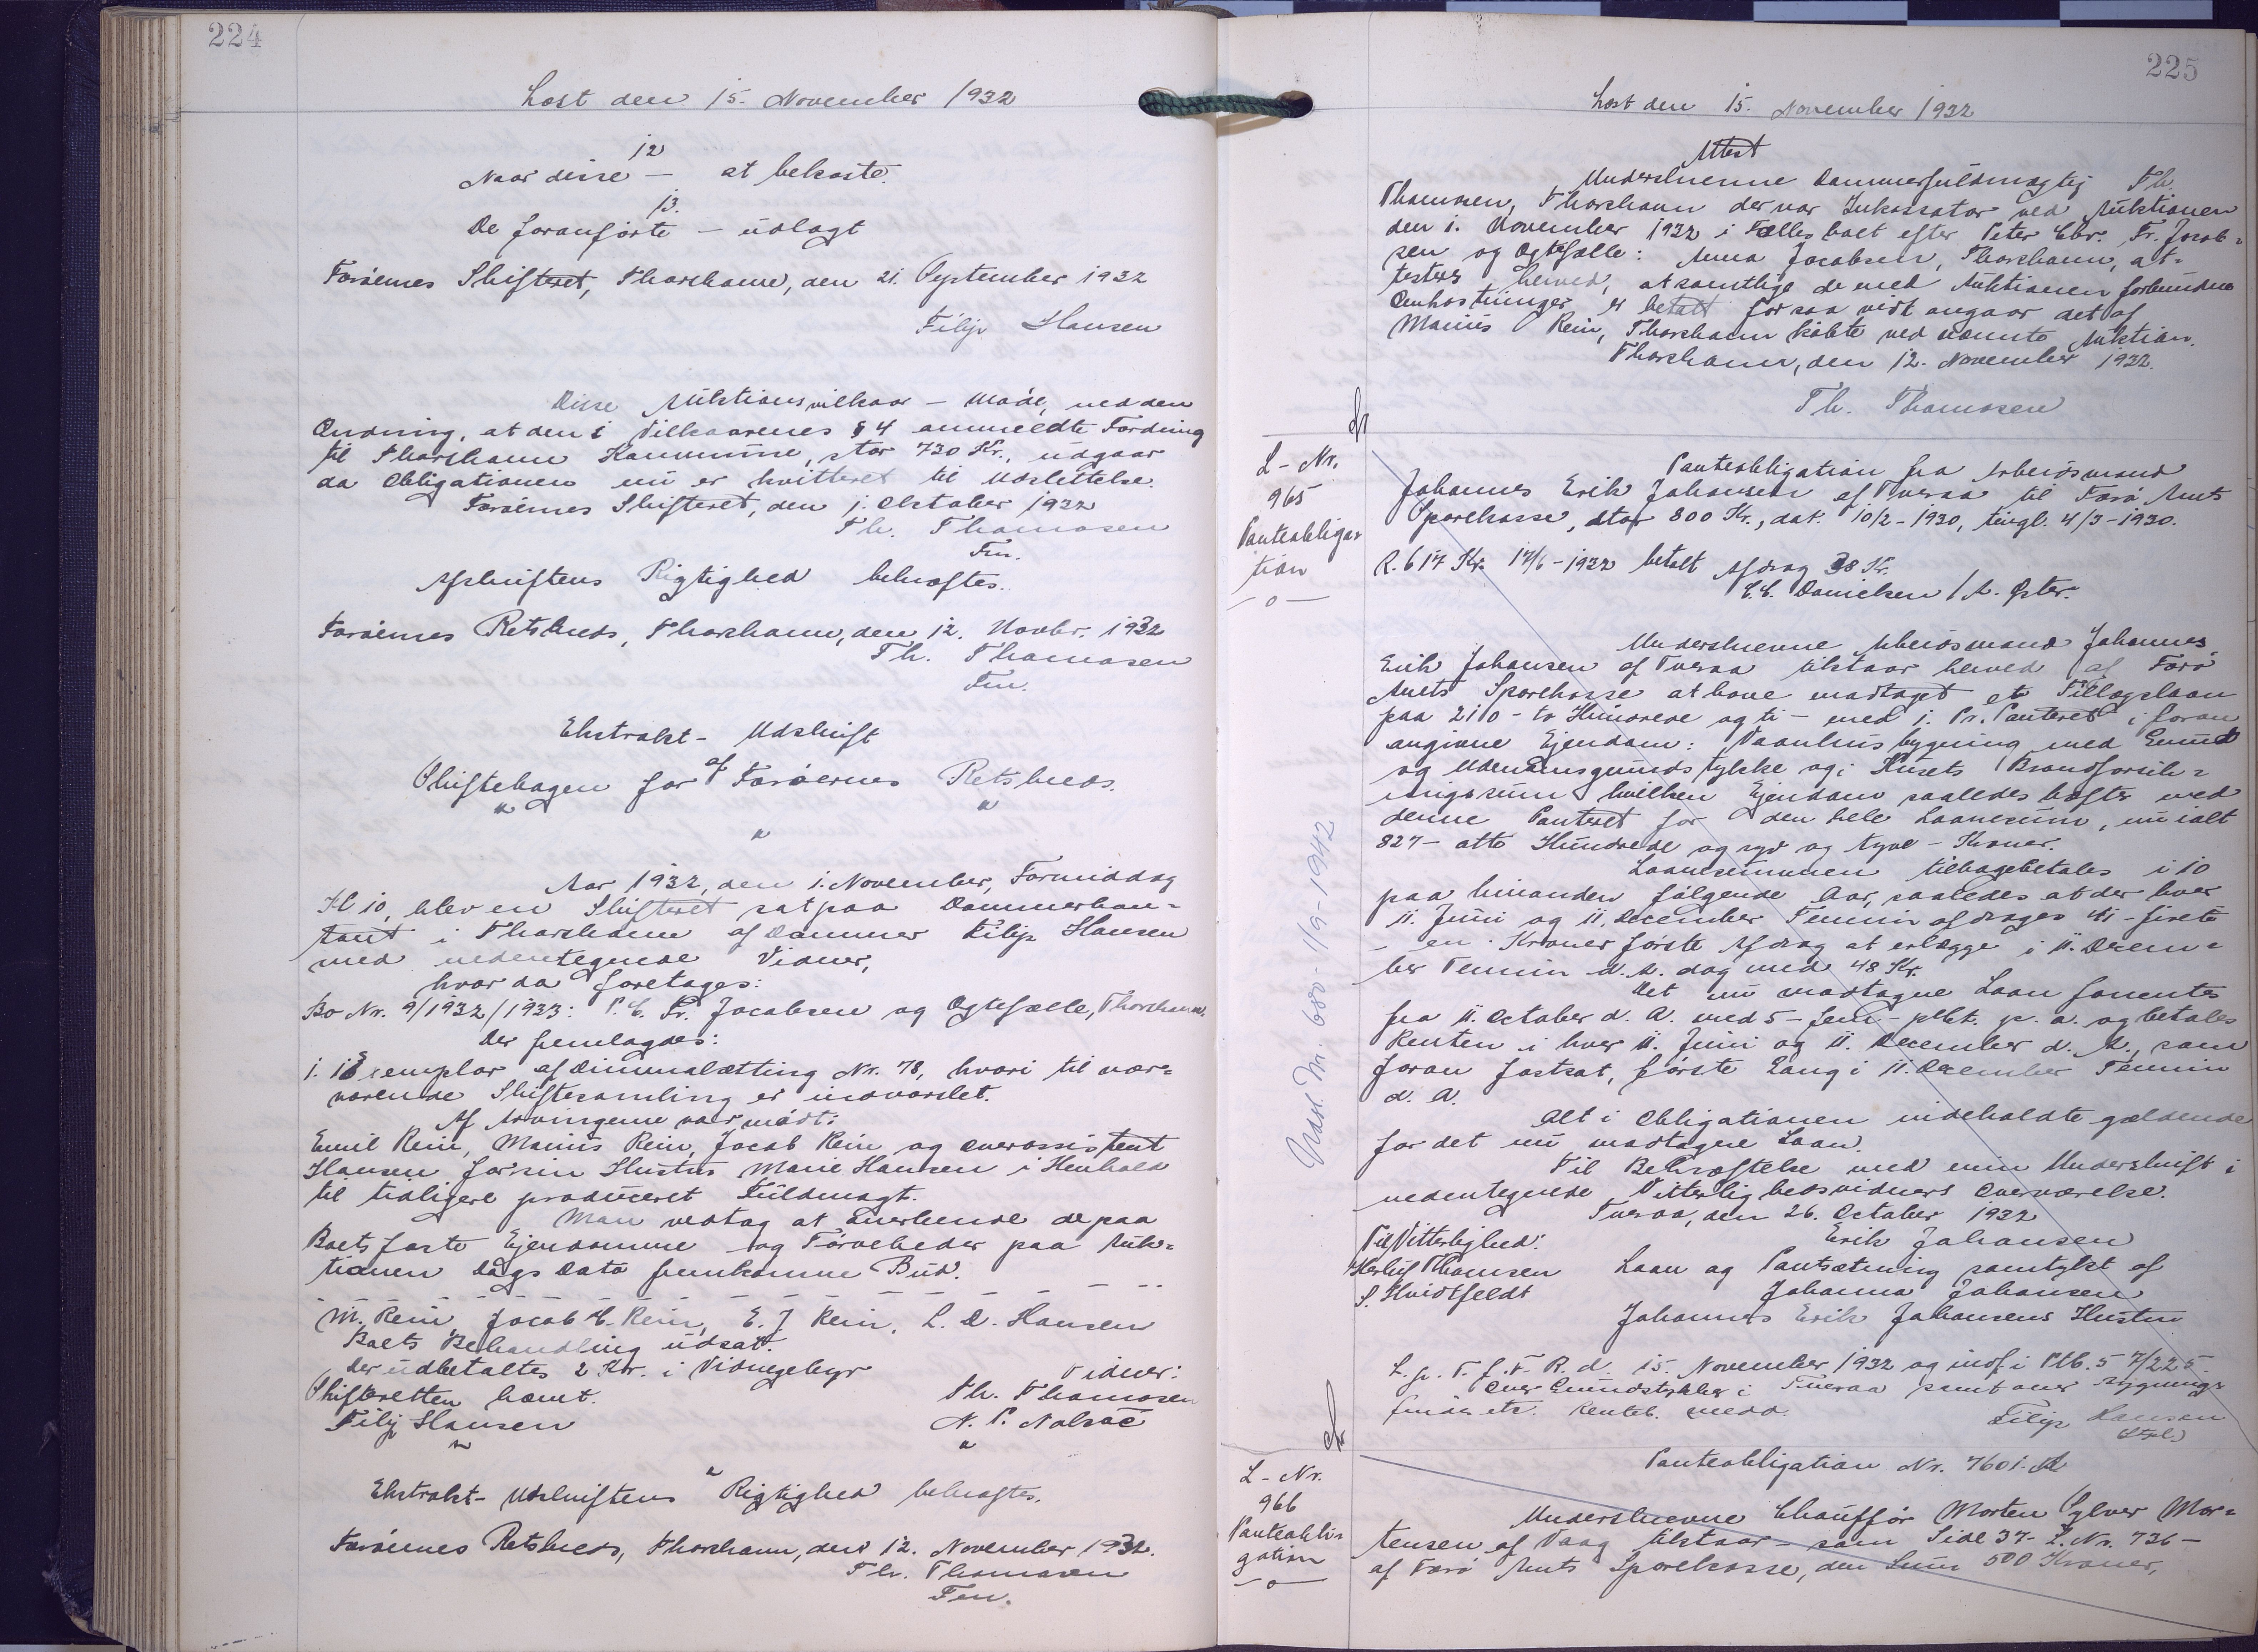 224
Læst den 15. November 1932
12
Naar disse — at bekoste.
13.
De foranførte — udlagt
Færøernes Skifteret, Thorshavn, den 21. September 1932
Filip Hansen
Disse Auktionsvilkaar — Møde, med den
Ændring, at den i Vilkaarenes § 4 anmeldte Fordring
til Thorshavn Kommune, stor 730 Kr., udgaar
da Obligationen nu er kvitteret til Udslettelse.
Færøernes Skifteret, den 1. Oktober 1932
Th. Thomasen
Fm.
Afskriftens Rigtighed bekræftes.
Færøernes Retskreds, Thorshavn, den 12. Novbr. 1932
Th. Thomasen
Fm.
Ekstrakt- Udskrift
af
Skiftebogen for Færøernes Retskreds.
Aar 1932, den 1. November, Formiddag
Kl 10, blev en Skifteret sat paa Dommerkon=
toret i Thorshavn af Dommer Filip Hansen
med nedentegnede Vidner,
hvor da foretoges:
Bo Nr. 9/1932/1933: P. C. Fr. Jacobsen og Ægtefælle, Thorshavn.
Der fremlagdes:
1. 1 Exemplar af Dimmalætting Nr. 78, hvori til nær=
værende Skiftesamling er indvarslet.
Af Arvingerne var mødt:
Emil Rein, Marius Rein, Jacob Rein og Overassistent
Hansen for sin Hustru Marie Hansen i Henhold
til tidligere produceret Fuldmagt.
Man vedtog at anerkende de paa
Boets faste Ejendomme og Tørveheder paa Auk=
tionen Dags Dato fremkomne Bud.
M. Rein Jacob C. Rein, E. J Rein, L. D. Hansen
Boets Behandling udsat.
Der udbetaltes 2 Kr. i Vidnegebyr
Vidner:
Skifteretten hævet.
Th. Thomasen
Filip Hansen
N. P. Nolsøe
Ekstrakt- Udskriftens Rigtighed bekræftes.
Færøernes Retskreds, Thorshavn, den 12. November 1932.
Th. Thomasen
Fm.
225
Læst den 15. November 1932
Attest
Underskrevne Dommerfuldmægtig Th.
Thomasen, Thorshavn der var Inkassator ved Auktionen
den 1. November 1932 i Fællesboet efter Peter Chr. Fr. Jacob=
sen og Ægtefælle: Anna Jacobsen, Thorshavn, at=
testeres herved, at samtlige de med Auktionen forbundne
Omkostninger er betalt for saa vidt angaar det af
Marius Rein, Thorshavn købte ved nævnte Auktion.
Thorshavn, den 12. November 1932.
Th. Thomasen
L - Nr.
965
Panteobliga=
tion
—o—
Panteobligation fra Arbejdsmand
Johannes Erik Johansen af Tveraa til Færø Amts
Sparekasse, stor 800 Kr., dat. 10/2 - 1930, tingl. 4/3 - 1930.
R. 617 Kr. 17/6 - 1932 betalt Afdrag 38 Kr.
C. C. Danielsen / A. Øster.
Underskrevne Arbejdsmand Johannes
Erik Johansen af Tveraa tilstaar herved af Færø
Amts Sparekasse at have modtaget et Tillægslaan
paa 210 - to Hundrede og ti - med 1. Pr. Panteret i foran
angivne Ejendom: Vaanhusbygning med Grund
og Udenomsgrundstykke og i Husets Brandforsik=
ringssum hvilken Ejendom saaledes hæfter med
denne Panteret for den hele Laanesum, nu ialt
827 - otte Hundrede og syv og tyve - Kroner.
Laanesummen tilbagebetales i 10
paa hinanden følgende Aar, saaledes at der hver
11. Juni og 11. December Termin afdrages 41 - firete
- en - Kroner første Afdrag at erlægge i 11. Decem=
ber Termin d. A. dog med 48 Kr.
Det nu modtagne Laan forrentes
fra 11. October d. A. med 5 - fem - pCt. p. a. og betales
Renten i hver 11. Juni og 11. December d. A., som
foran fastsat, første Gang i 11. December Termin
d. A.
Alt i Obligationen indeholdte gældende
for det nu modtagne Laan.
Til Bekræftelse med min Underskrift i
nedentegnede Vitterlighedsvidners Overværelse.
Tveraa, den 26. October 1932
Til Vitterlighed:
Erik Johansen
Herluf Thomsen
Laan og Pantsætning samtykt af
S. Hvidtfeldt
Johanna Johansen
Johannes Erik Johansens Hustru
L. p. T. f. F. R. d. 15. November 1932 og indf i Ptb. 57/225.
Over Grundstykker i Tveraa samt over Bygnings
findes etc. Renteb. medd.
Filip Hansen
Udsl. Nr. 680 - 1/9 - 1942
L - Nr.
966
Panteobli=
gation
—o—
Panteobligation Nr. 7601. A
Underskrevne Chauffør Morten Sylver Mor=
tensen af Vaag tilstaar - som Side 37 - L. Nr. 736 -
af Færø Amts Sparekasse, den Sum 500 Kroner,